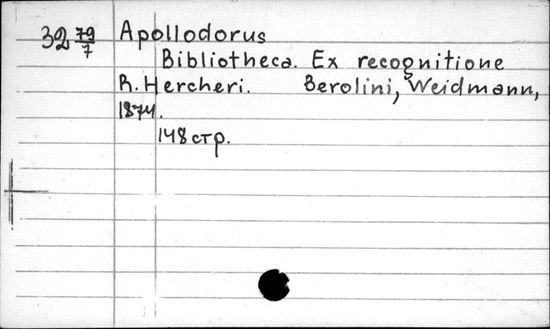 32 79/7 Apollodorus
Bibliotheca. Ex recognitione
R. Hercheri. Berolini, Weidmann,
1874.
148 стр.